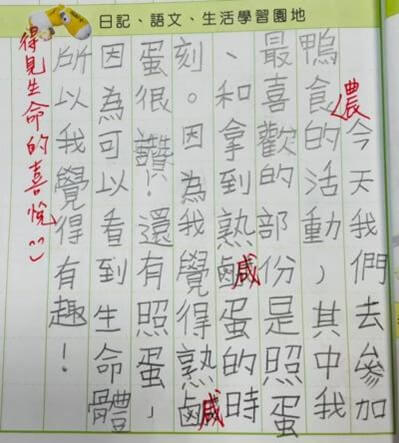 日記、語文、生活學習園地
今天我們去參加
鴨食農的活動，其中我
最喜歡的部份是照蛋
、和拿到熟鹹蛋的時
刻。因為我覺得熟鹹
蛋很讚！還有照蛋，
因為可以看到生命體
所以我覺得有趣！
得見生命的喜悅